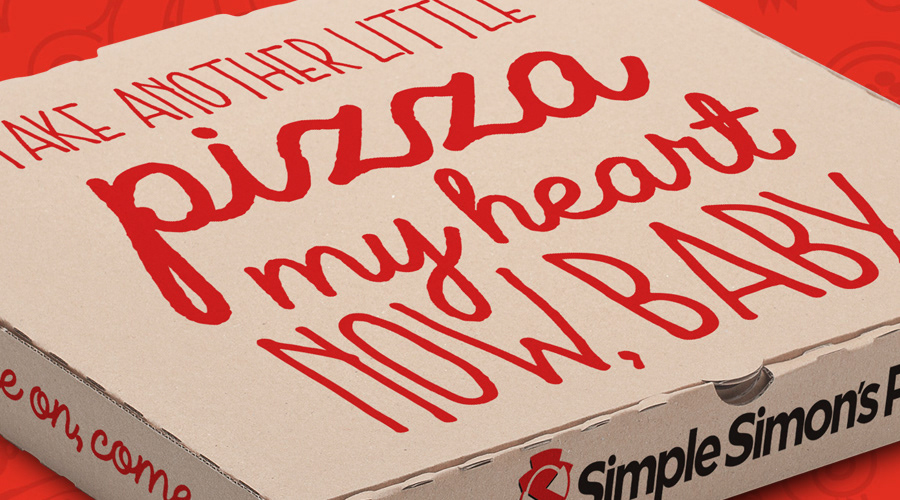 TAKE ANOTHER LITTLE
pizza
my heart
NOW, BABY
e on, come
Simple Simon's P